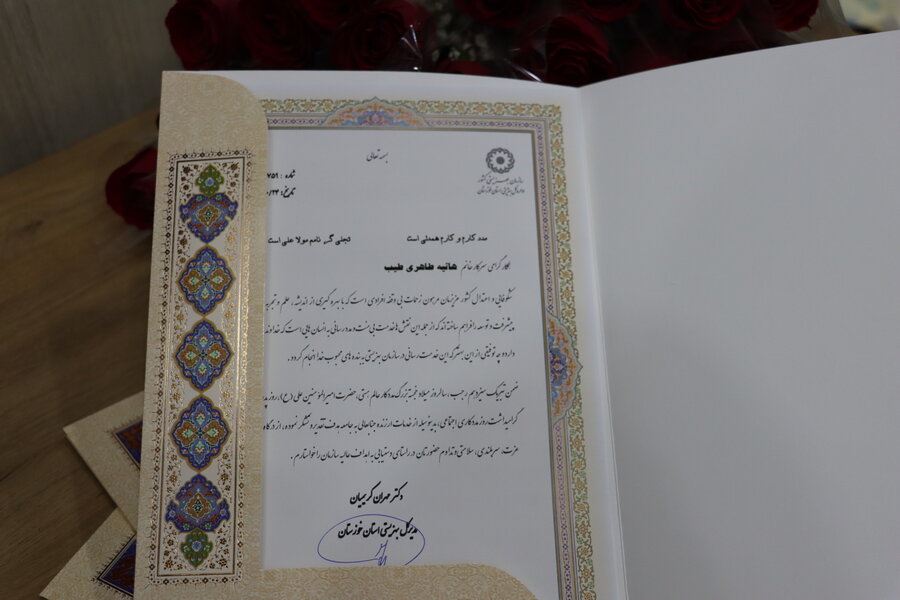 بسمه تعالی
سازمان بهزیستی کشور
اداره کل بهزیستی استان خوزستان
شماره : ۷۵۹
تاریخ: ۰/۲۴
مددکارم و کارم همدلی است تجلی گر نامم مولا علی است
همکار گرامی سرکار خانم هانیه طاهری طیب
شکوفائی و اعتدال کشور عزیزمان مرهون زحمات بی وقفه افرادی است که با بهره گیری از اندیشه، علم و تجربه
پیشرفت و توسعه را فراهم ساخته اند که از جمله این نقش ها خدمت بی منت و مددرسانی به انسان هایی است که خداوند
دارد و چه توفیقی از این بهتر که این خدمت رسانی در سازمان بهزیستی به بنده های محبوب خدا انجام گردد.
ضمن تبریک سیزدهم رجب، سالروز میلاد خجسته بزرگ مددکار عالم هستی، حضرت امیرالمومنین علی (ع)، روز پدر
گرامیداشت روز مددکاری اجتماعی، بدینوسیله از خدمات ارزنده جنابعالی به جامعه هدف تقدیر و تشکر نموده، از درگاه
عزت، سربلندی، سلامتی و تداوم حضورتان در راستای دستیابی به اهداف عالیه سازمان را خواستارم.
دکتر مهران کریمیان
مدیرکل بهزیستی استان خوزستان